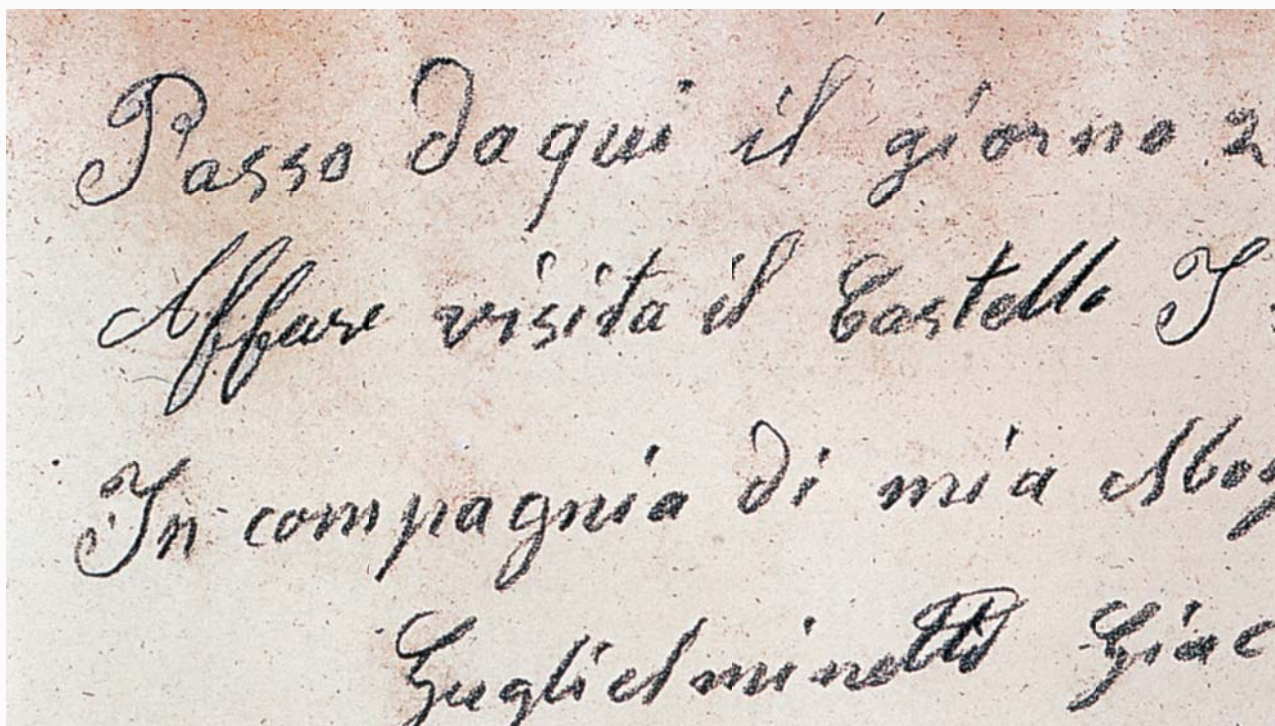 Passo daqui il giorno 2
Affare visita il Castello I
In compagnia di mia Mog
Guglielminetti Giac